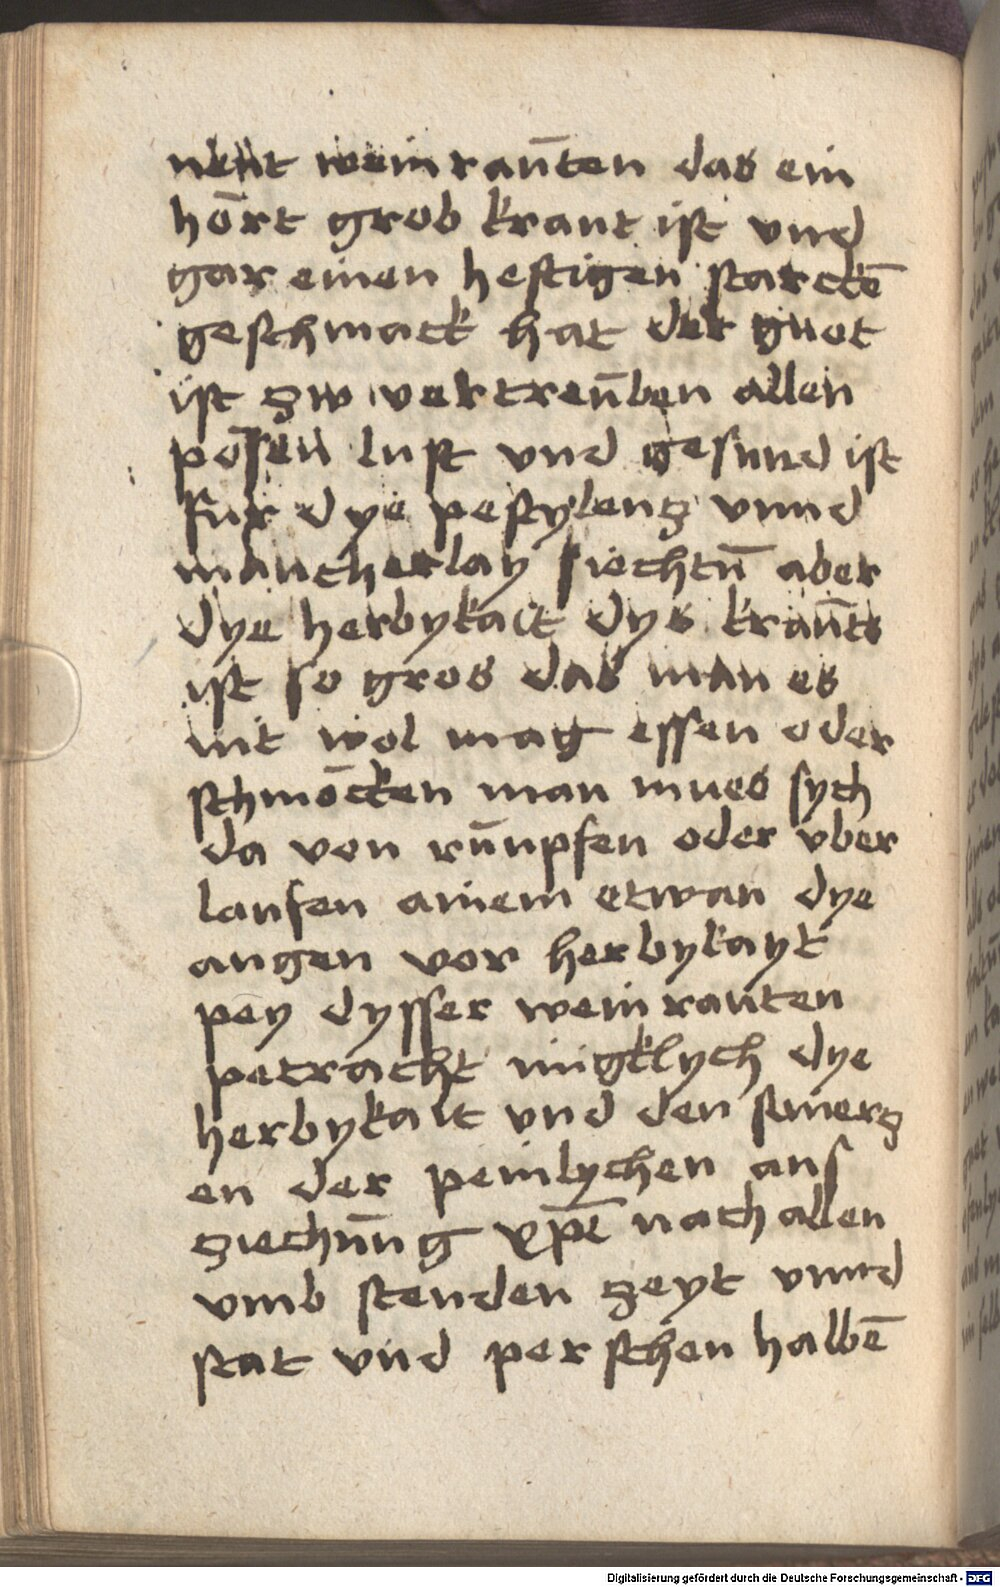 nent weinrauten das ein
hört grob kraut ist vnd
gar einen heftigen starckē
geschmack hat der guet
ist zw vertreüben allen
posen luft vnd gesund ist
fur dye pestylentz vnnd
mancherlay siechtū aber
dye herbykait dys kraüts
ist so gros das man es
nit wol mag essen oder
schmöcken man mues sych
da von rünpfen oder vber
laufen ainem etwan dye
augen vor herbykayt
pey dysser weinrauten
petracht innigklych dye
herbykait vnd den smerz
en der peinlychen aus
ziechūng xp̄i nach allen
vmb stenden zeyt vnnd
stat vnd perschen halbē
Digitalisierung gefördert durch die Deutsche Forschungsgemeinschaft - DFG